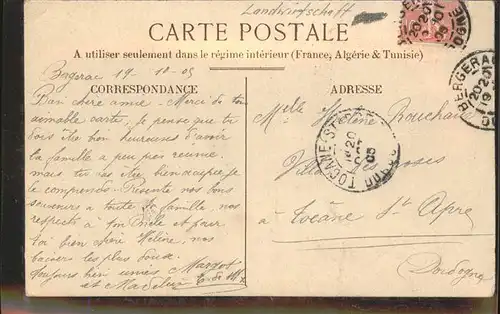 Landwirtschaft
CARTE POSTALE
A utiliser seulement dans le régime intérieur (France, Algérie & Tunisie)
Bergerac 19-10-05
CORRESPONDANCE
ADRESSE
Bien chère amie - Merci de ton
aimable carte, je pense que tu
dois être bien heureuse d'avoir
ta famille a peu près reunie,
mais tu es bien occupée je
le comprends. Presente nos bons
souvenirs a toute ta famille, nos
respects à ton oncle et pour
toi bien chère Hélène, nos
baisers les plus doux.
Toujours bien unies Margot
et Madeleine
Mlle Hélène Rouchaud
Villa des Roses
à Tocane St Apre
Dordogne
BERGERAC
20
05
TOCANE-ST
20
05